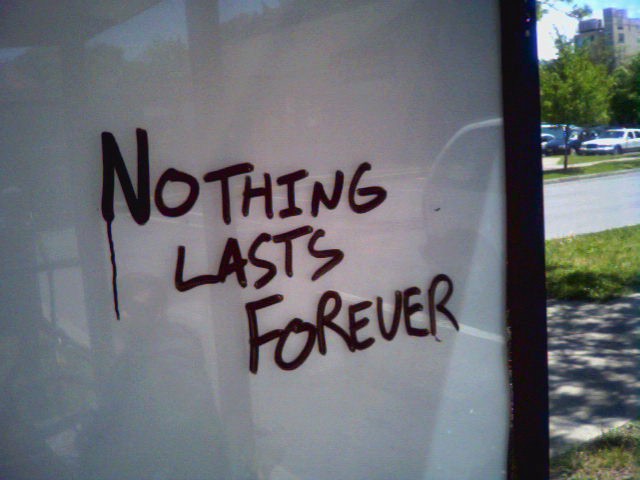 NOTHING
LASTS
FOREVER